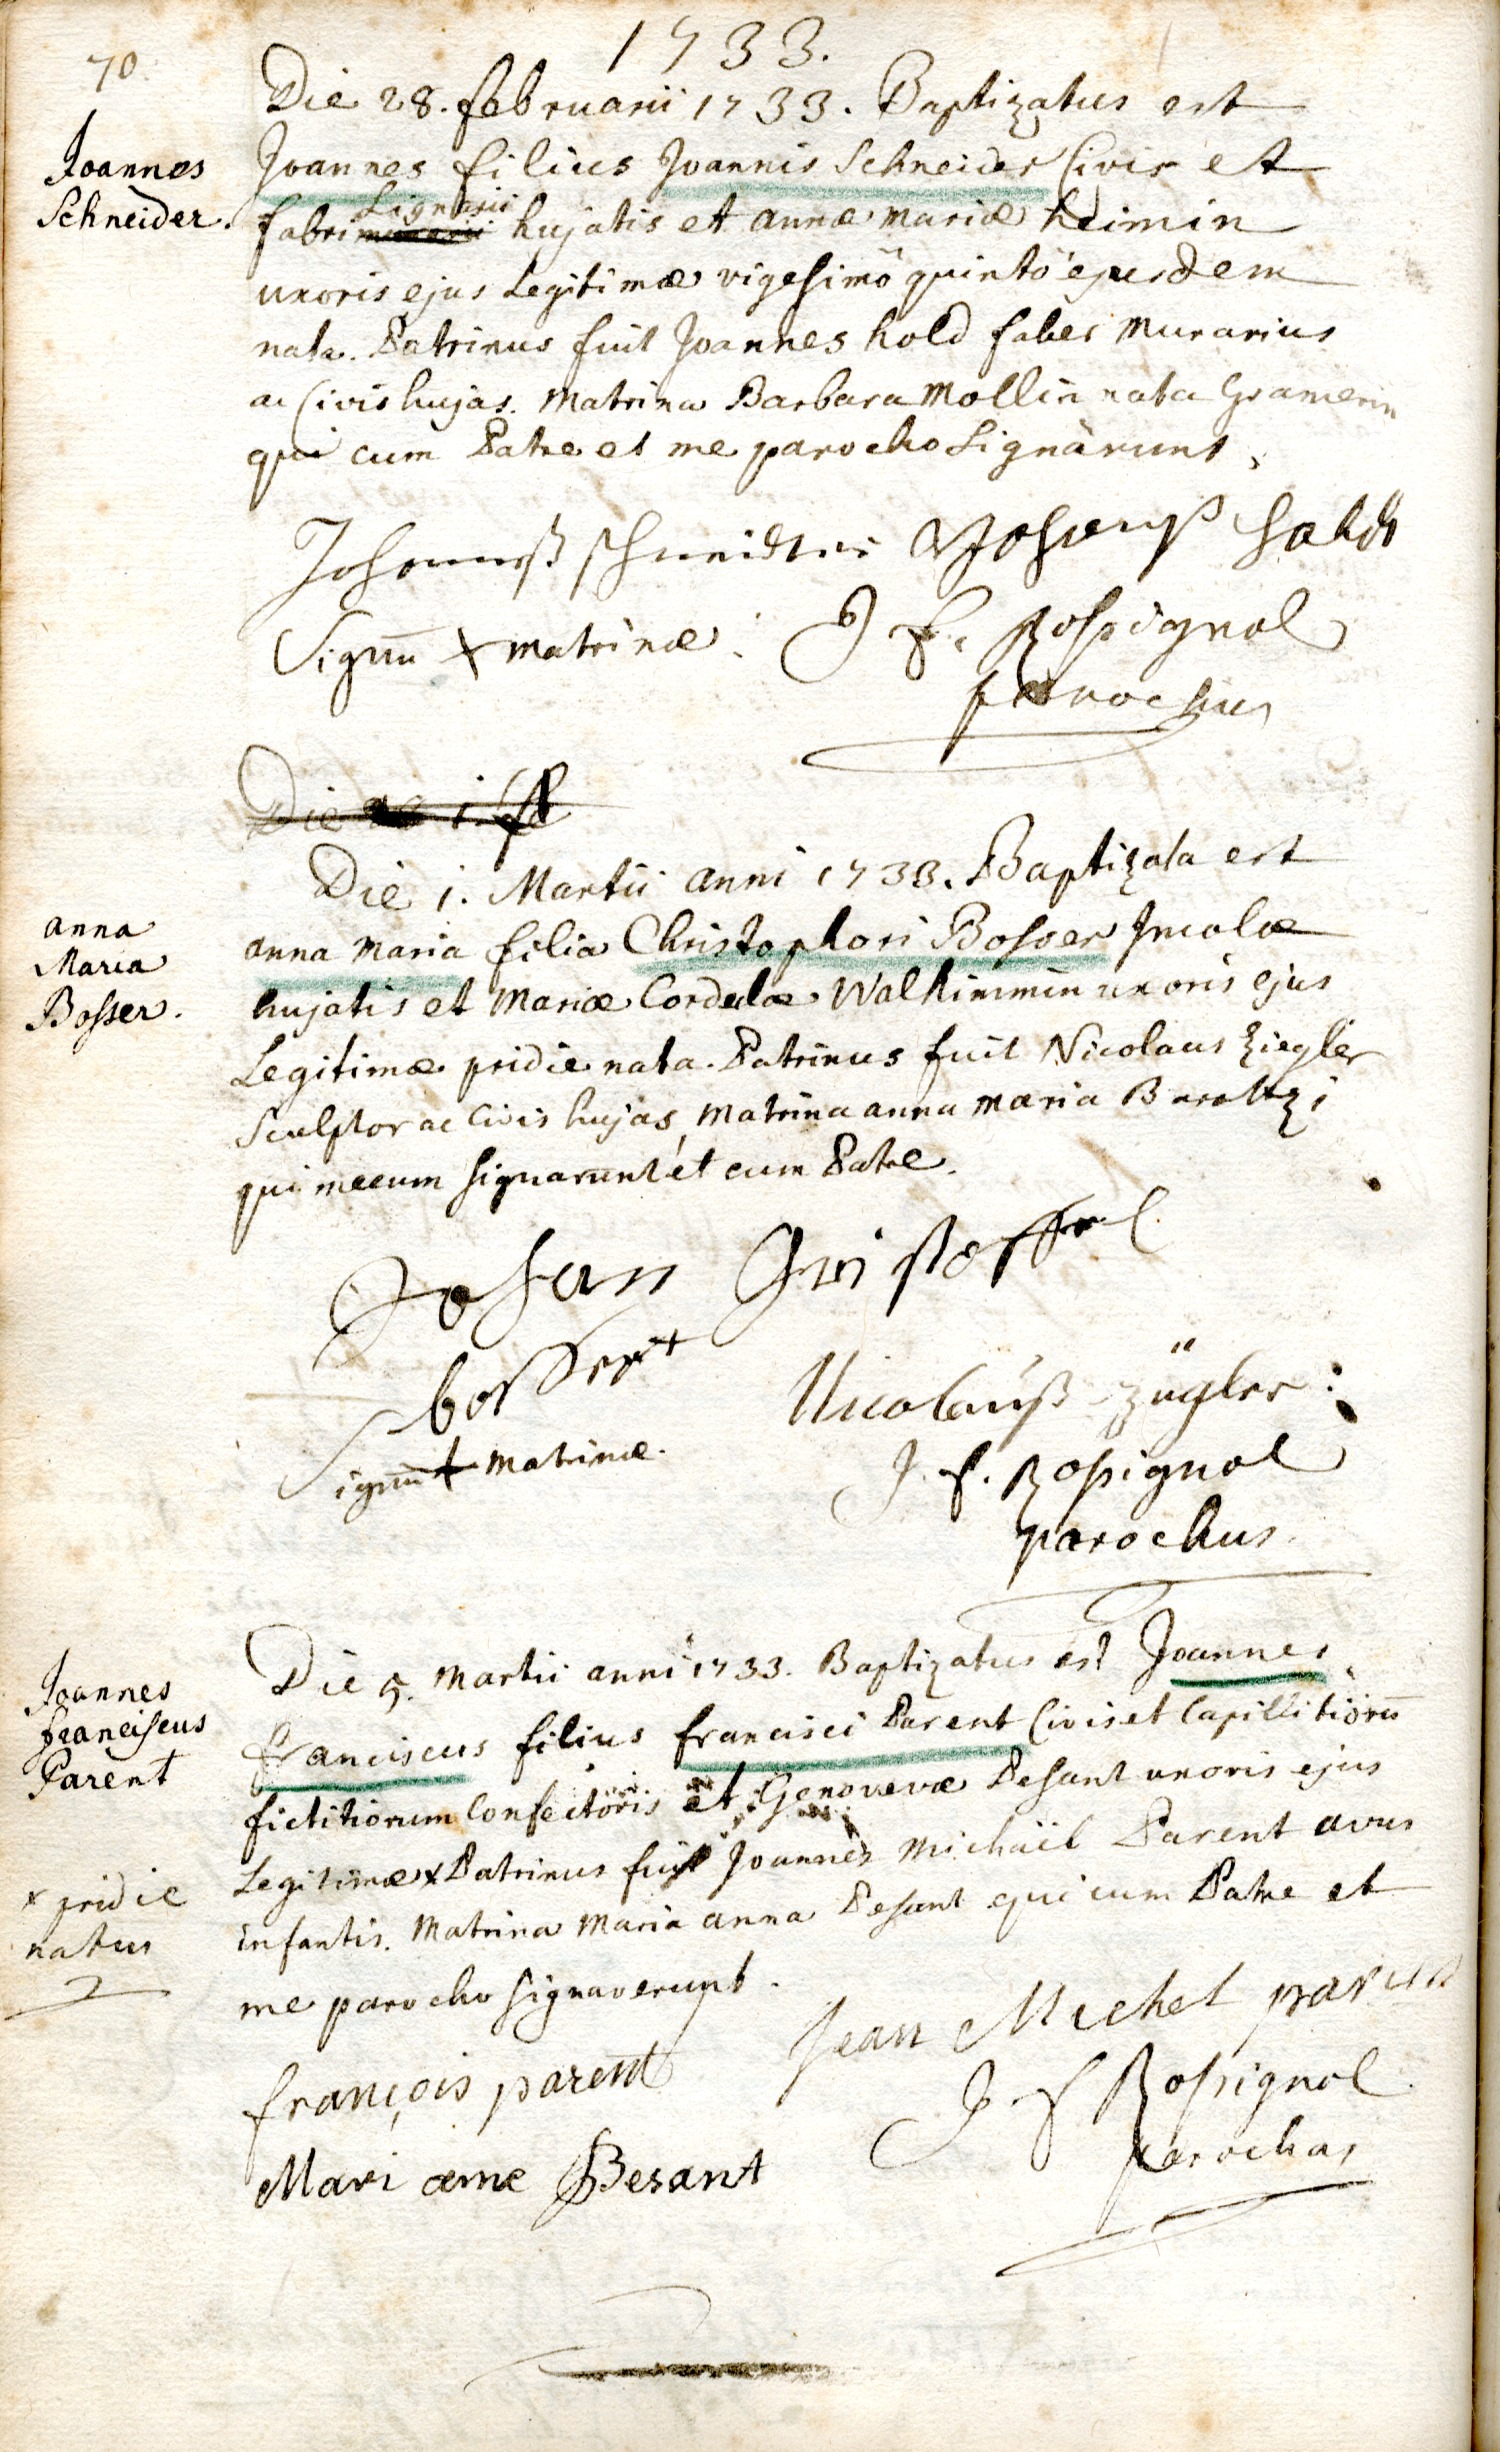 70.
1733.
Die 28. februarii 1733. Baptizatus est
Joannes
Schneider.
Joannes filius Joannis Schneider Civis et
Lignarii
fabri hujatis et annæ mariæ heimin
uxoris ejus Legitimæ vigesimô quintô ejusdem
nata. Patrinus fuit Joannes hold faber murarius
ac Civis hujas. Matrina Barbara Mollin nata Gramerin
qui cum Patre et me parocho Signârunt.
Johannß schneidter Johanß holdt
Signũ x matrinæ. J f. Rossignol
parochus
Die 1. fe
Die 1. Martii anni 1733. Baptizata est
anna
Maria
Bosser.
anna maria filia Christophori Bosser Incolæ
hujatis et Mariæ Cordulæ Walkimmin uxoris ejus
Legitimæ pridie nata. Patrinus fuit Nicolaus Ziegler
Sculptor ac Civis hujas, matrina anna maria
qui mecum signarunt et cum Patre.
Johan Christoffel
bossert
Nicolauß Zügler:
Signũ + matrinæ.
J. f. Rossignol
parochus.
Die 5. martii anni 1733. Baptizatus est Joannes
Joannes
franciscus
Parent
franciscus filius francisci Parent Civis et Capillitiorũ
fictitiorum Confectoris et Genovevæ Besant uxoris ejus
Legitimæ x Patrinus fuit Joannes Michaël Parent avus
x pridie
natus
infantis. Matrina Maria anna Besant qui cum Patre et
me parocho signaverunt.
Jean Michel parent
françois parent
J f Rossignol
parochus
Mari anne Besant